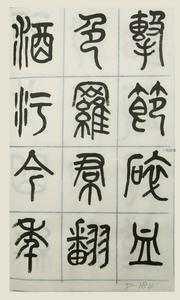 擊節碎血
色羅裙翻
酒汙今年